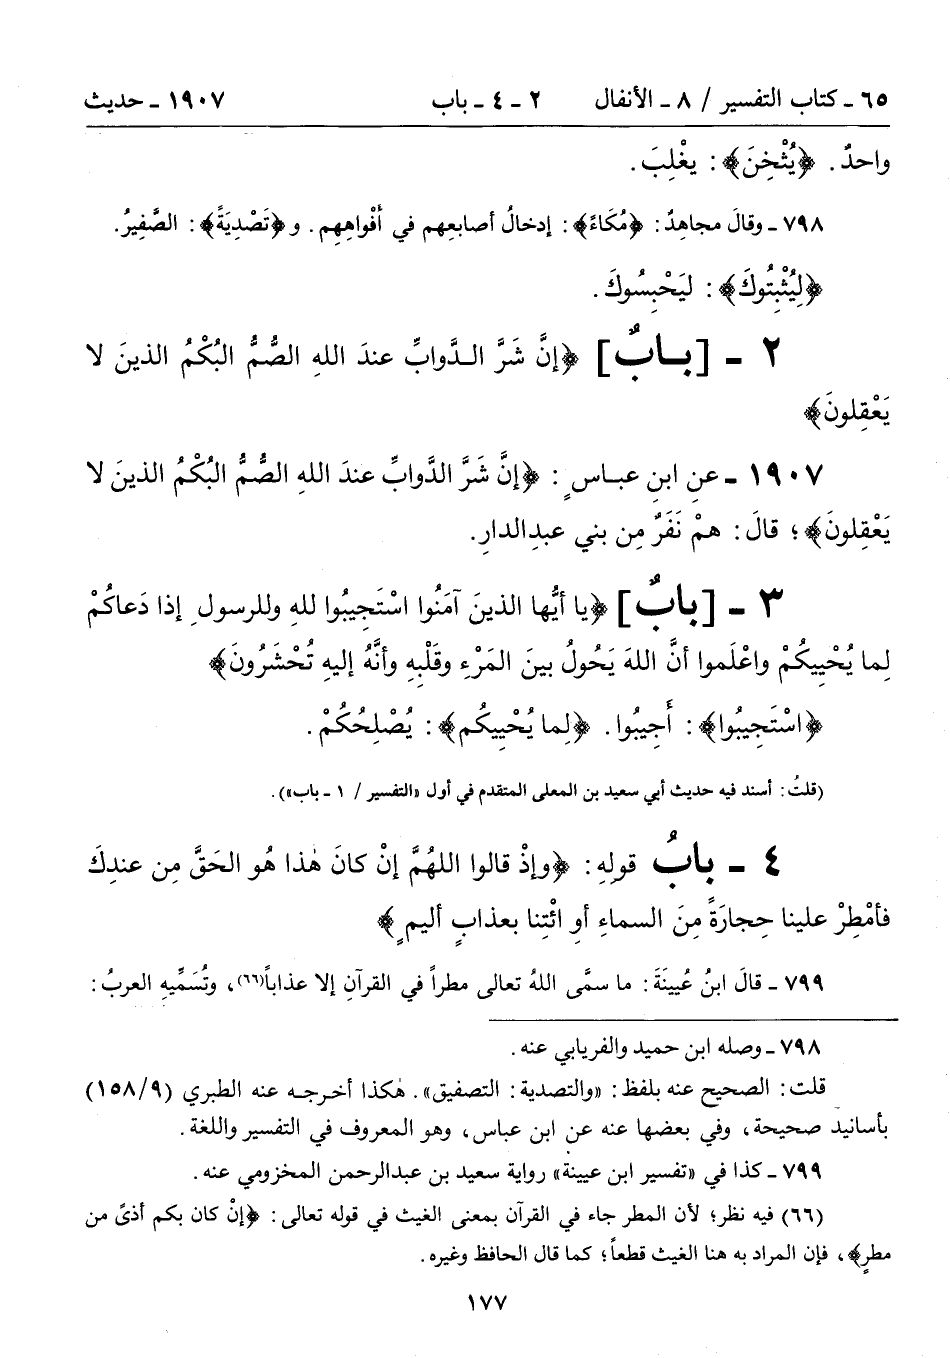 ٦٥ ـ كتاب التفسير / ٨ ـ الأنفال ٢ ـ ٤ ـ باب ١٩٠٧ ـ حديث
واحدٌ . ﴿يُثْخِنَ﴾ : يغْلِبَ .
٧٩٨ ـ وقالَ مجاهِدٌ : ﴿مُكَاءً﴾ : إدخالُ أصابعِهم في أفْواهِهِم . و﴿تَصْدِيَةً﴾ : الصَّفِيرُ .
﴿لِيُثْبِتُوكَ﴾ : ليَحْبِسُوكَ .
٢ ـ [بــابٌ] ﴿إنَّ شَرَّ الـدَّوابِّ عندَ اللهِ الصُّمُّ البُكْمُ الذينَ لا
يَعْقِلونَ﴾
١٩٠٧ ـ عنِ ابنِ عبـاسٍ : ﴿إنَّ شَرَّ الدَّوابِّ عندَ اللهِ الصُّمُّ البُكْمُ الذينَ لا
يَعْقِلونَ﴾ ؛ قالَ : همْ نَفَرٌ مِن بني عبدِالدارِ .
٣ ـ [بابٌ] ﴿يا أيُّها الذينَ آمَنُوا اسْتَجِيبُوا للهِ وللرسولِ إذا دَعاكُمْ
لِما يُحْيِيكُمْ واعْلَموا أنَّ اللهَ يَحُولُ بينَ المَرْءِ وقَلْبِهِ وأنَّهُ إليهِ تُحْشَرُونَ﴾
﴿اسْتَجِيبُوا﴾ : أَجِيبُوا . ﴿لِما يُحْيِيكُم﴾ : يُصْلِحُكُمْ .
(قلتُ : أسند فيه حديث أبي سعيد بن المعلى المتقدم في أول «التفسير / ١ ـ باب») .
٤ ـ بابُ قولِهِ : ﴿وإذْ قالوا اللهُمَّ إنْ كانَ هٰذا هُو الحَقَّ مِن عندِكَ
فأمْطِرْ علينا حِجارَةً مِنَ السماءِ أوِ ائْتِنا بعذابٍ أليمٍ﴾
٧٩٩ ـ قالَ ابنُ عُيينَةَ : ما سمَّى اللهُ تعالى مطراً في القرآنِ إلا عذاباً(٦٦)، وتُسَمِّيهِ العربُ :
٧٩٨ ـ وصله ابن حميد والفريابي عنه .
قلت : الصحيح عنه بلفظ : «والتصدية : التصفيق» . هٰكذا أخـرجـه عنه الطبري (٩/١٥٨)
بأسانيد صحيحة ، وفي بعضها عنه عن ابن عباس ، وهو المعروف في التفسير واللغة .
٧٩٩ ـ كذا في «تفسير ابن عيينة» رواية سعيد بن عبدالرحمن المخزومي عنه .
(٦٦) فيه نظر ؛ لأن المطر جاء في القرآن بمعنى الغيث في قوله تعالى : ﴿إنْ كان بكم أذىً من
مطرٍ﴾ ، فإن المراد به هنا الغيث قطعاً ؛ كما قال الحافظ وغيره .
١٧٧